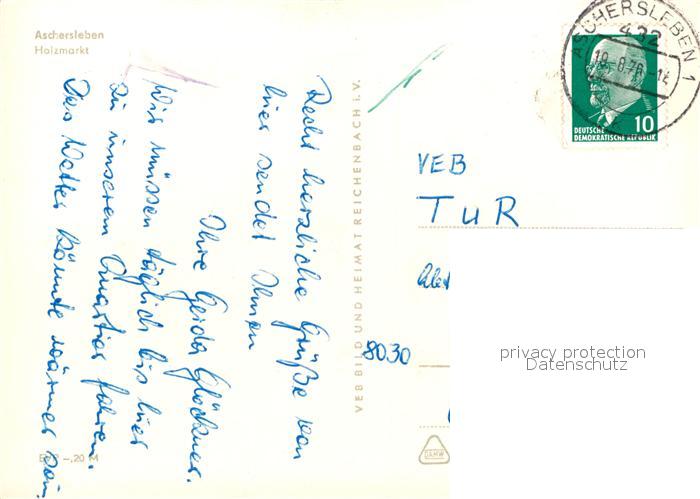 Aschersleben
Holzmarkt
Recht herzliche Grüße von
hier sendet Ihnen
Ihre Gerda Glöckner.
Wir müssen täglich bis hier
zu unserem Quartier fahren.
Das Wetter könnte wärmer sein.
-,20 M
VEB BILD UND HEIMAT REICHENBACH i. V.
ASCHERSLEBEN 1
432
DEUTSCHE
DEMOKRATISCHE REPUBLIK
10
VEB
TuR
8030
privacy protection
Datenschutz